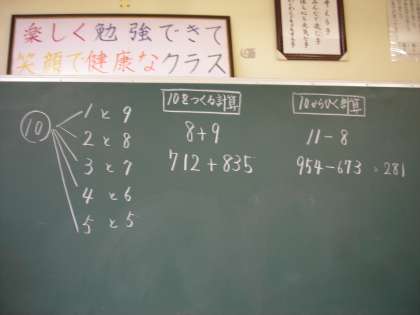 楽しく勉強できて
笑顔で健康なクラス
10
1と9
2と8
3と7
4と6
5と5
10をつくる計算
8+9
712+835
10からひく計算
11-8
954-673=281